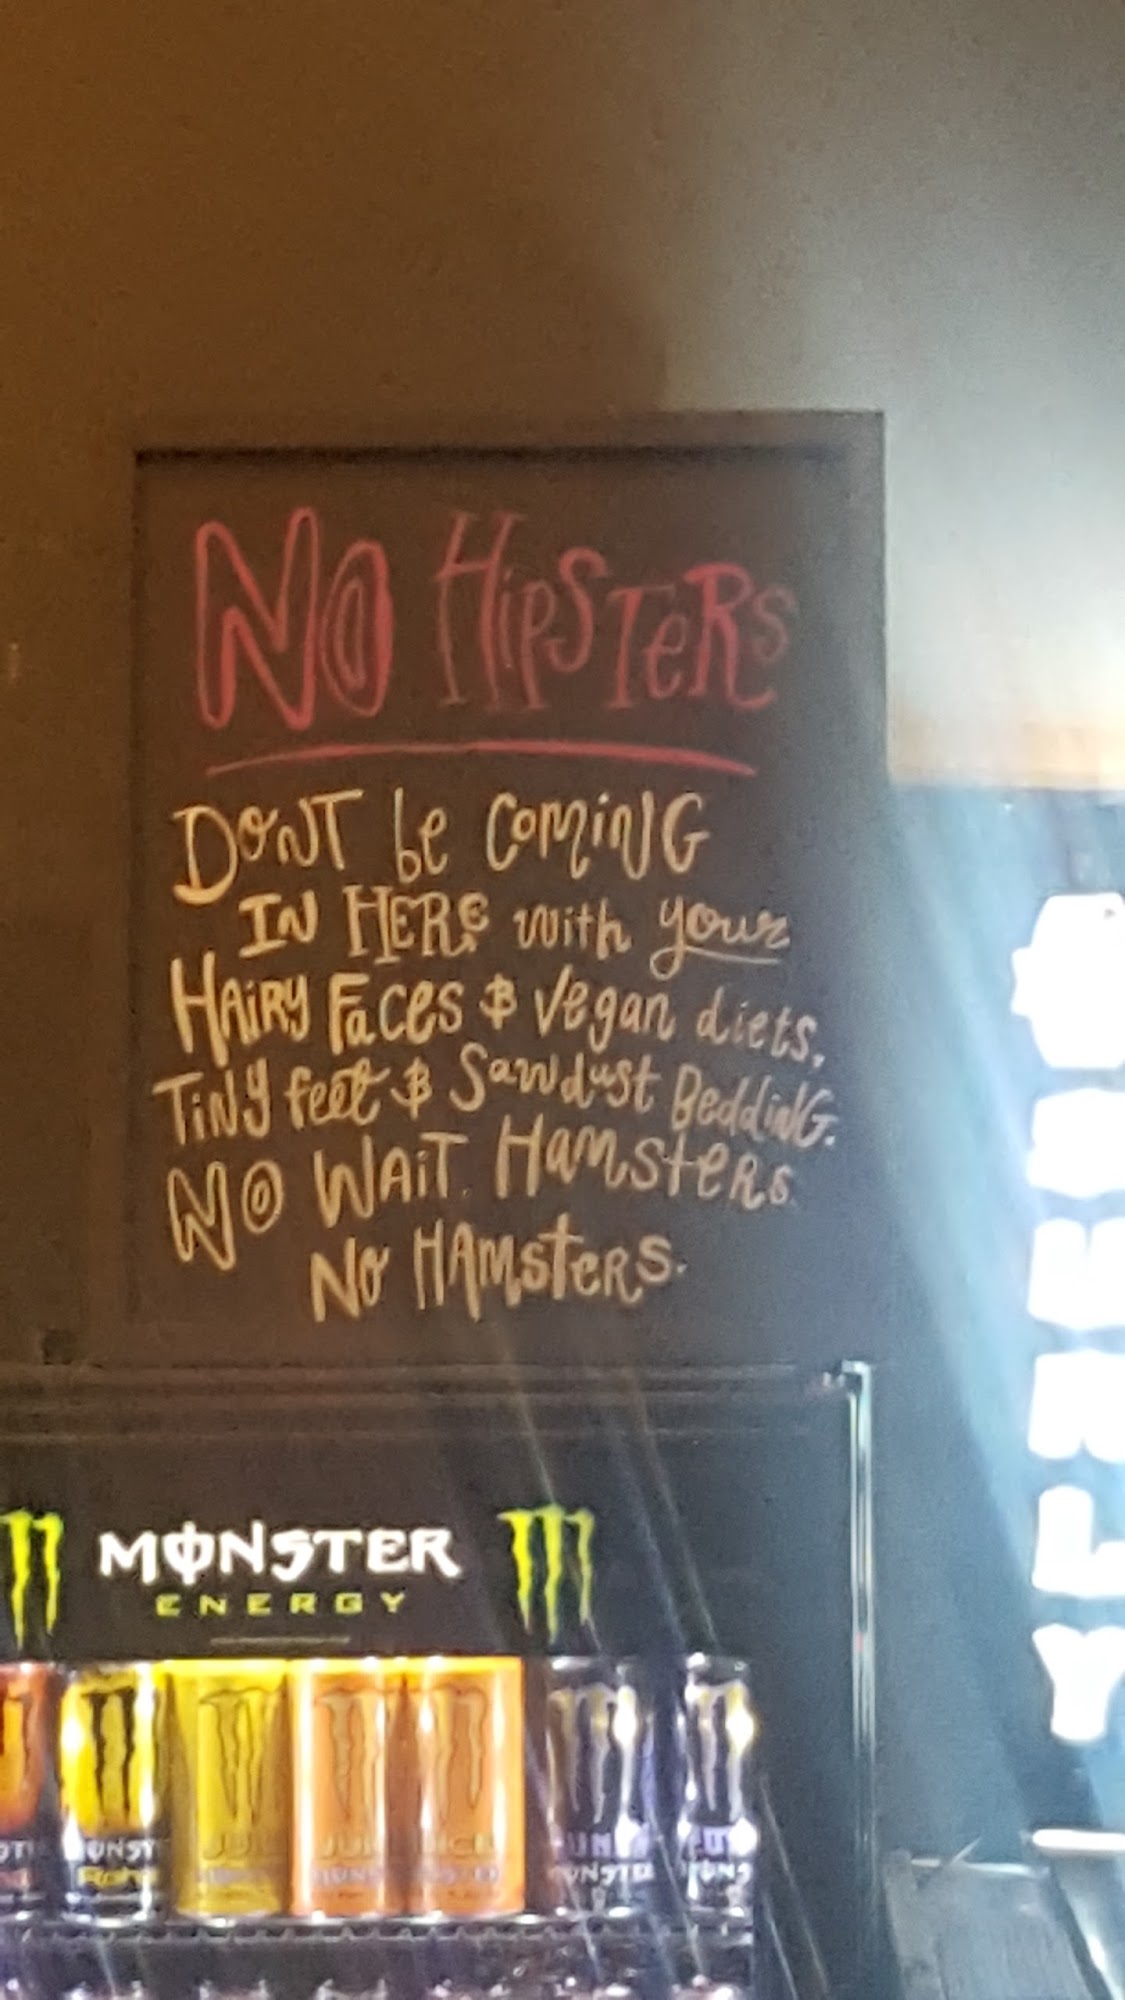 NO HipSTeRS
DONT be COMiNG
IN HERE with your
HAiRY FaCes & Vegan diets,
TiNy feet & Sawdust BeddiNG.
NO WAiT. HamsteRs.
No HAMsteRs.
MONSTER
ENERGY
MONSTER
MONSTER